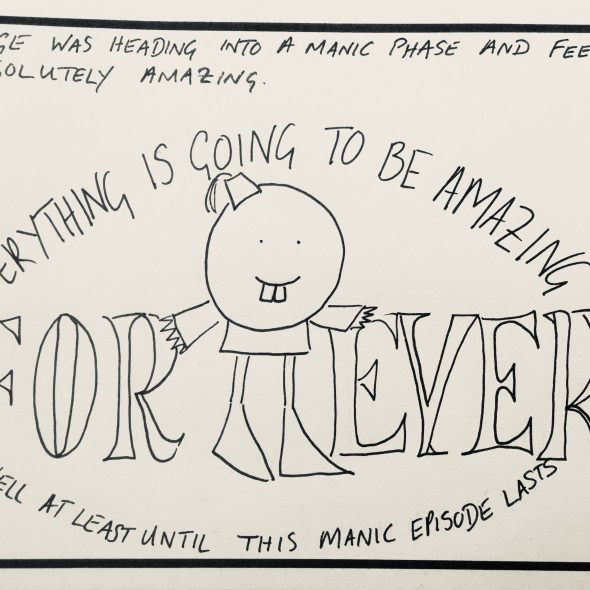 GE WAS HEADING INTO A MANIC PHASE AND FEE
SOLUTELY AMAZING.
ERYTHING IS GOING TO BE AMAZING
FOR EVER
ELL AT LEAST UNTIL THIS MANIC EPISODE LASTS